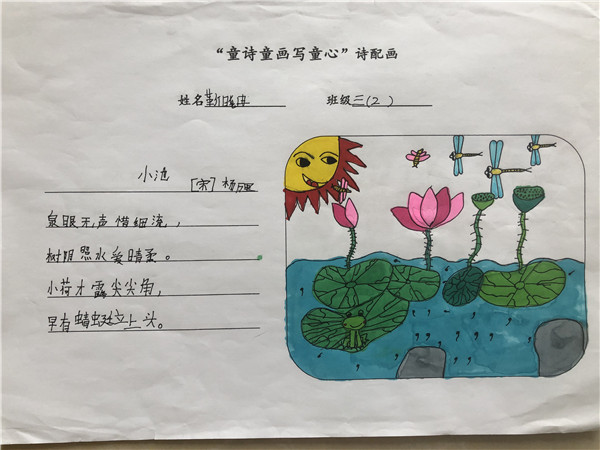 “童诗童画写童心”诗配画
姓名靳
班级三(2)
小池
[宋]杨万里
泉眼无声惜细流，
树阴照水爱晴柔。
小荷才露尖尖角，
早有蜻蜓立上头。